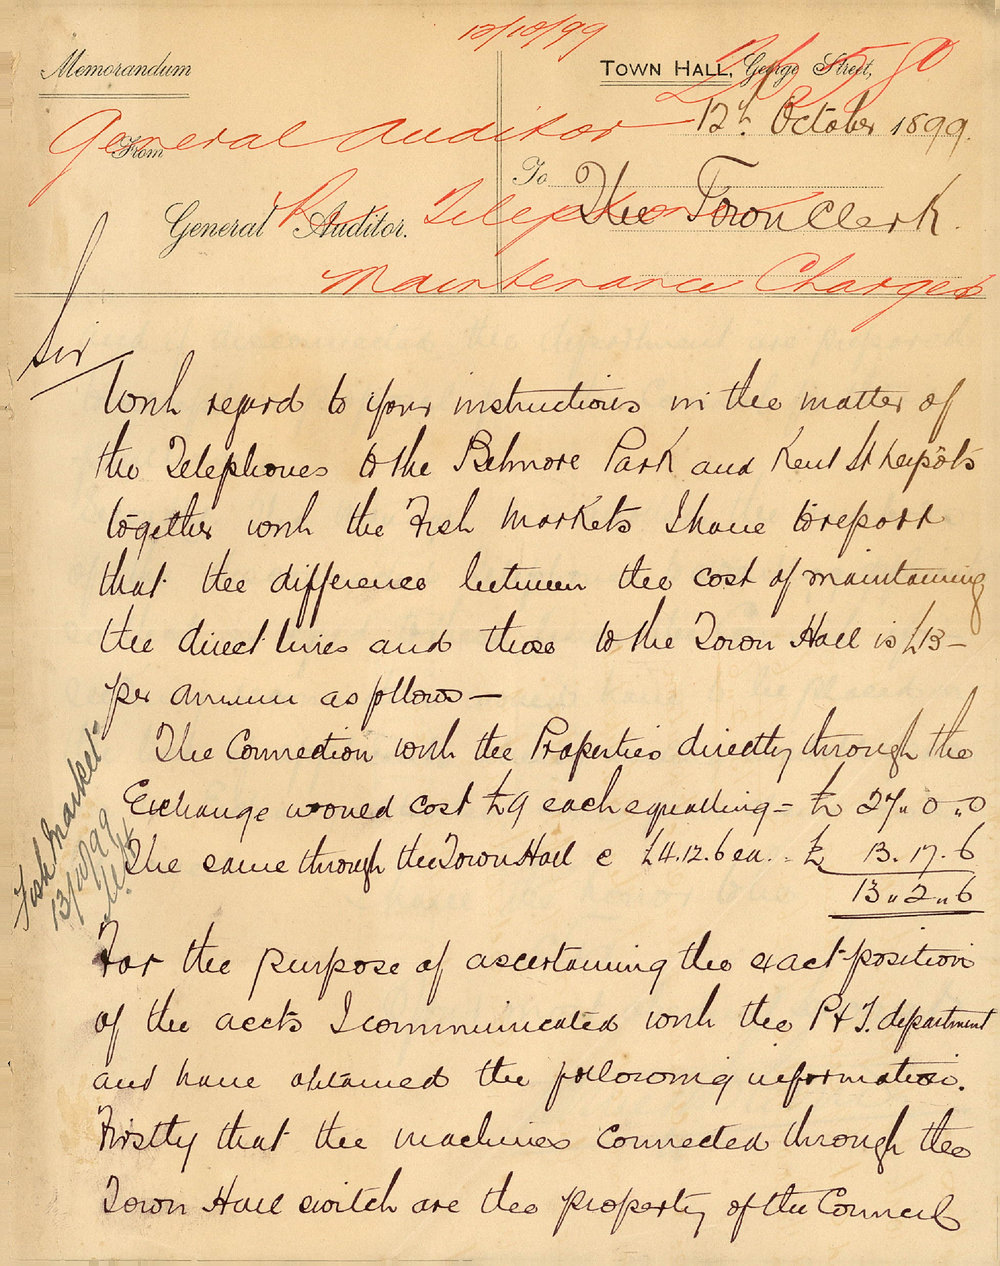 12/10/99
Memorandum
TOWN HALL, George Street,
12th October 1899.
General Auditor
From
To The Town Clerk.
General Auditor.
Re Telephone
Maintenance Charges
Sir
With regard to your instructions in the matter of
the Telephones to the Belmore Park and Kent St
together with the Fish Markets I have to report
that the difference between the cost of maintaining
the direct lines and those to the Town Hall is £13 -
per annum as follows -
The Connection with the Properties directly through the
Exchange would cost £9 each equalling = £ 27 " 0 " 0
The same through the Town Hall @ £4.12.6 ea. - £ 13.17.6
13 " 2 " 6
Fish Market
13/10/99
For the purpose of ascertaining the exact position
of the accts I communicated with the P & T. department
and have obtained the following information.
Firstly that the machines connected through the
Town Hall switch are the property of the Council